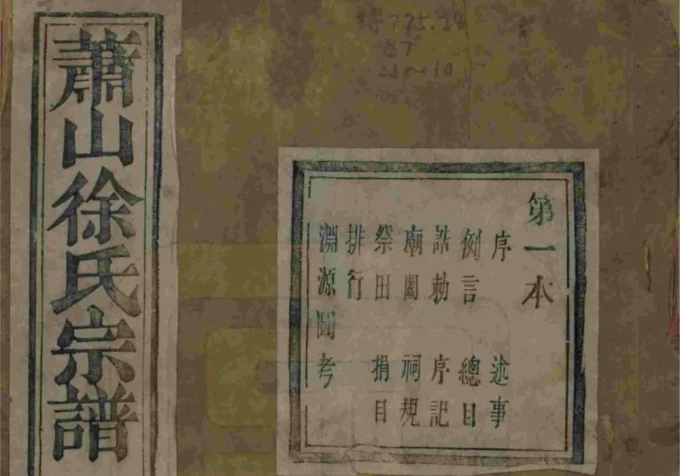 蕭山徐氏宗譜
第一本
序 述事
例言 總目
誥勅 序記
廟圖 祠規
祭田 捐目
排行
淵源圖考